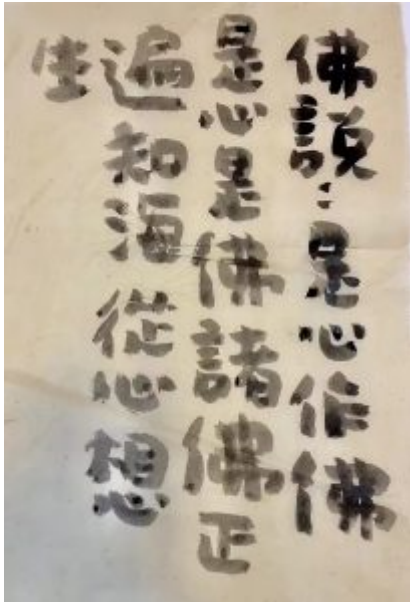 佛説：是心作佛
是心是佛諸佛正
遍知海從心想
生